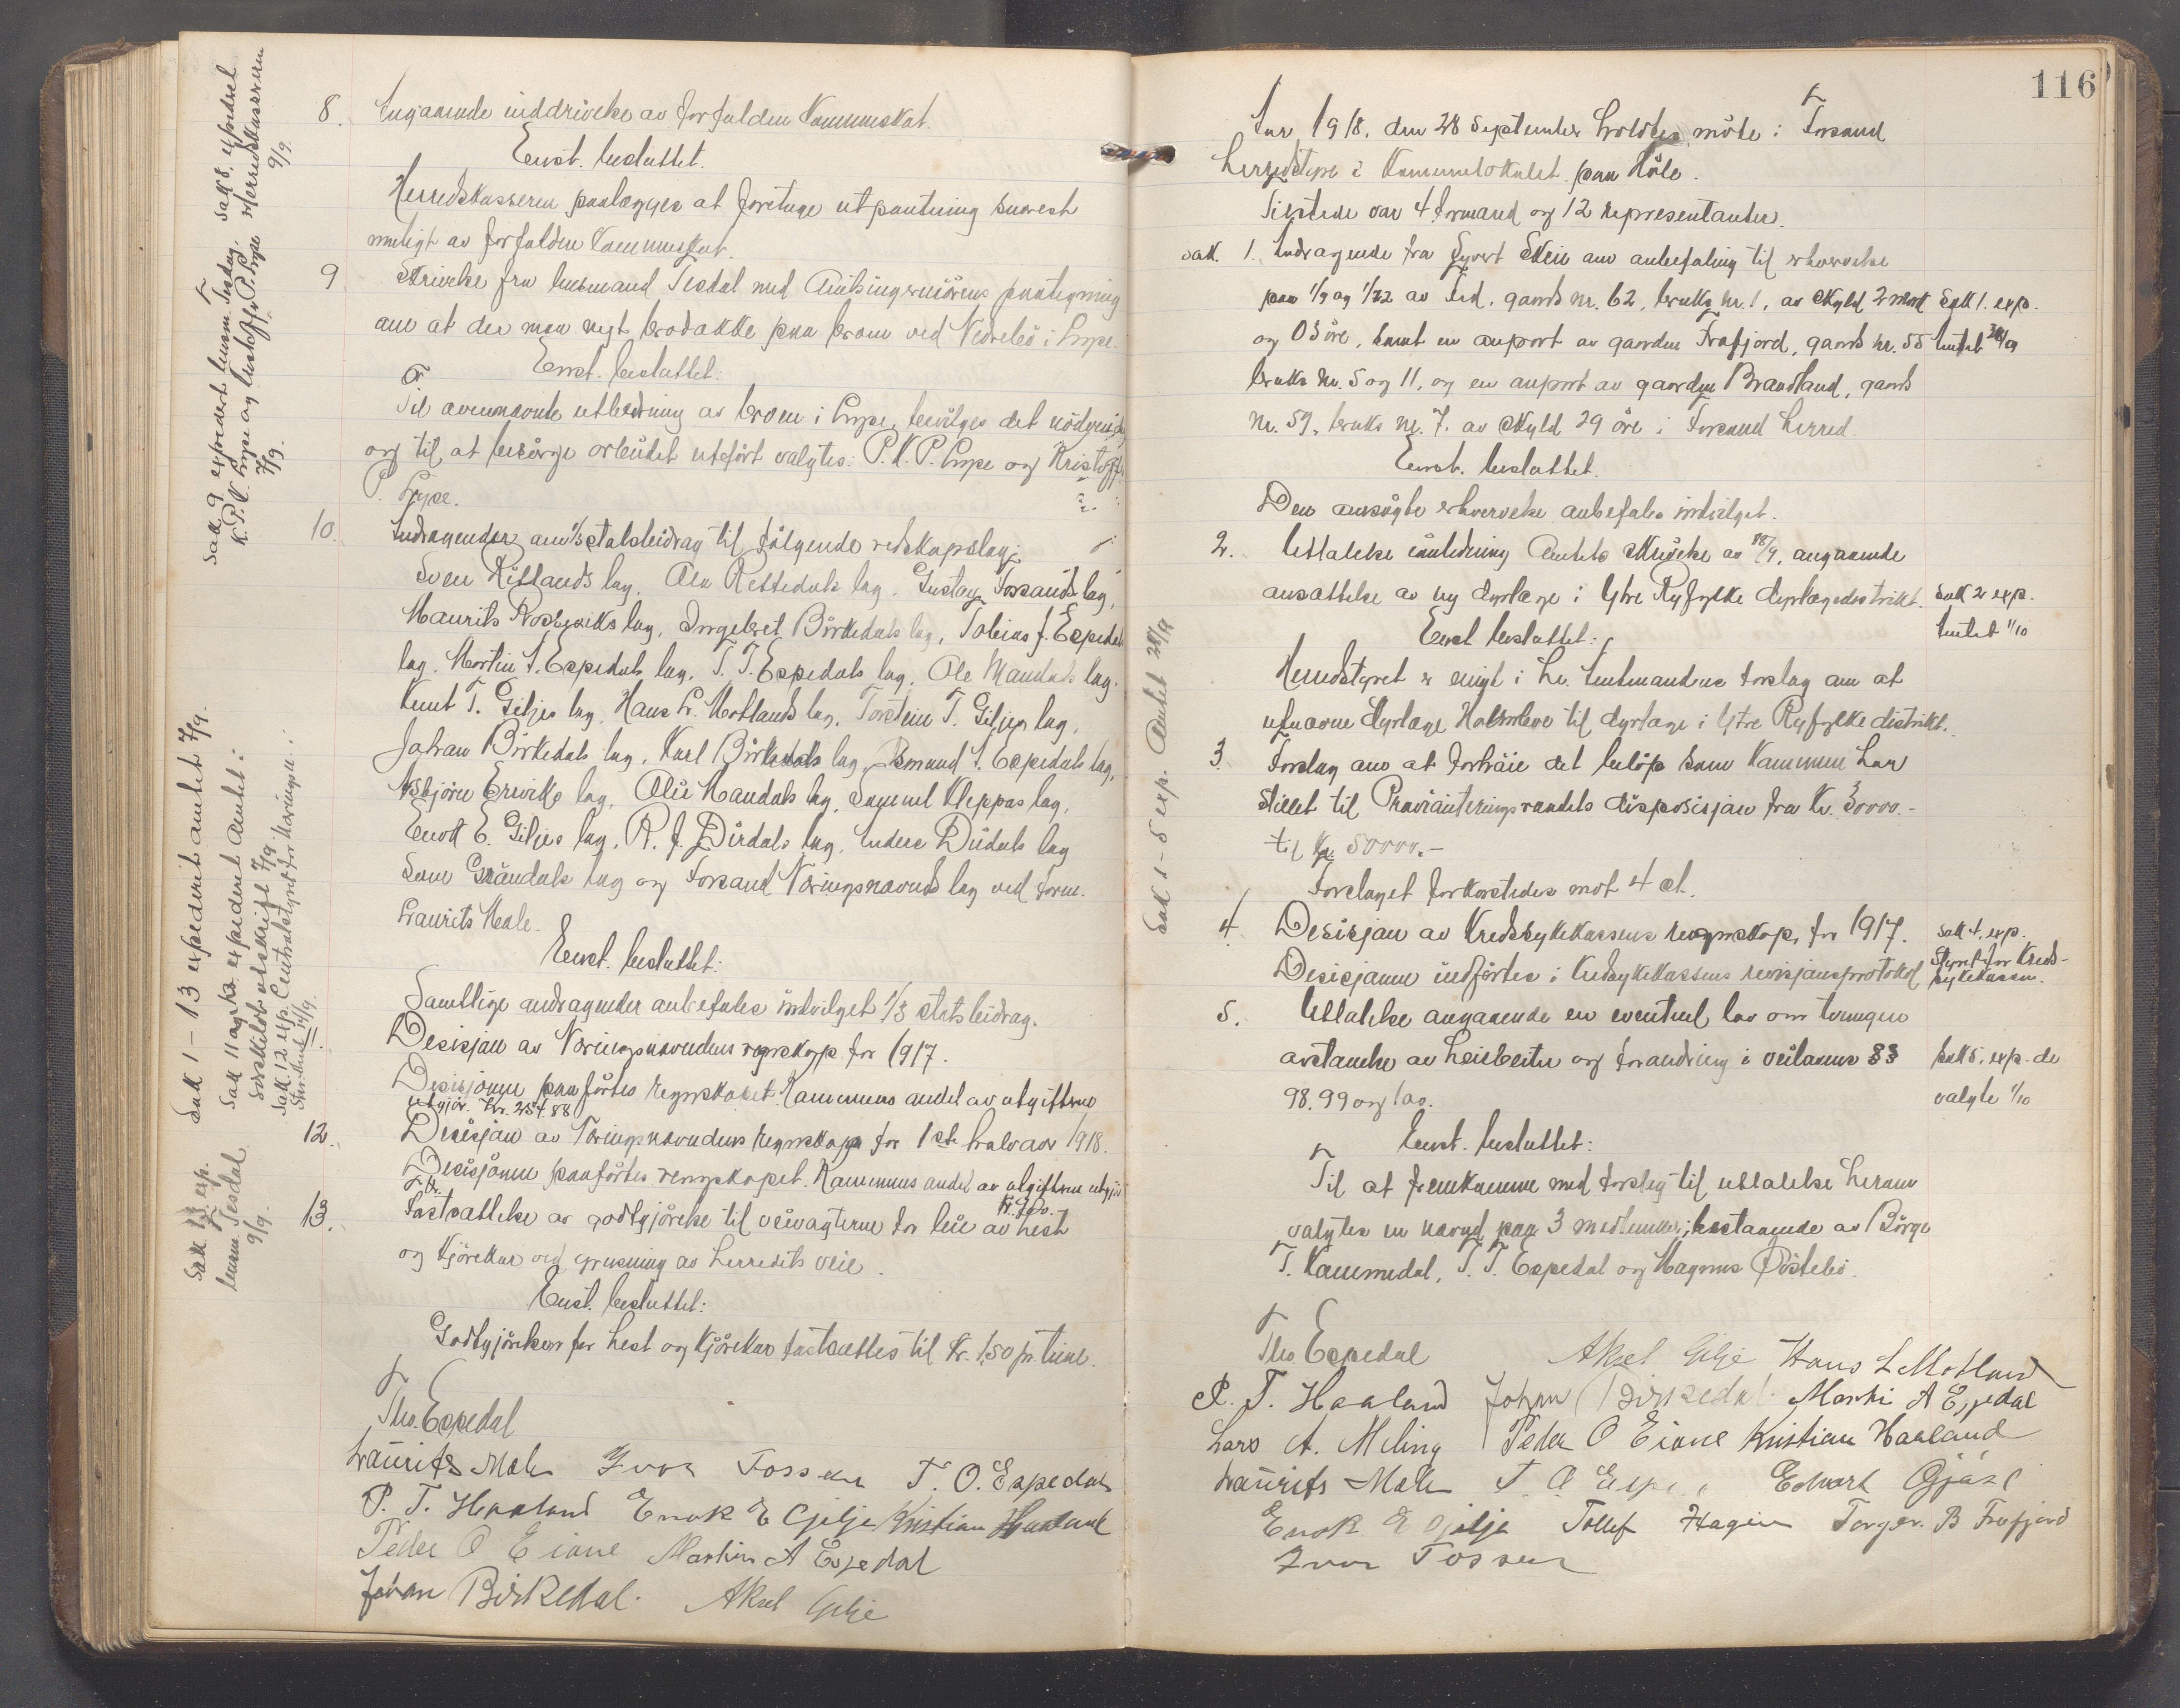 8. Angaaende inddrivelse av forfalden Kommuneskat.
Enst. besluttet.
Herredskasseren paalægges at foretage utpantning snarest
muligt av forfalden Kommuneskat.
9 Skrivelse fra lensmand Tesdal med Amtsingeniørens paategning
om at der maa nyt brodække paa broen ved Nedrebø i Lyse.
Enst. besluttet:
Til ovennævnte utbedring av broen i Lyse, bevilges det nødvendige
og til at besørge arbeidet utført valgtes: P. K. P. Lyse og Kristoffer
P. Lyse.
10. Andragender om 1/3 statsbidrag til følgende redskapslag:
Sven Rettlands lag, Ola Rettedals lag, Gustav Forsands lag,
Maurits Rosseviks lag, Ingebret Birkedals lag, Tobias J. Espedals
lag, Martin A. Espedals lag, T. T. Espedals lag, Ole Mandals lag.
Knut T. Giljes lag, Hans L. Motlands lag, Torstein T. Giljes lag,
Johan Birkedals lag, Karl Birkedals lag, Asmund A. Espedals lag,
Asbjörn Ereviks lag, Olai Haukals lag, Samuel Kleppas lag,
Enok E. Giljes lag, R. J. Dirdals lag, Anders Dirdals lag
Sven Gråndals lag og Forsand Næringsnævnds lag ved form.
Laurits Mæle.
Enst. besluttet:
Samtlige andragender anbefales indvilget 1/3 statsbidrag.
11. Desisjon av Næringsnævndens regnskap for 1917.
Desisjonen paaførtes regnskapet. Kommunens andel av utgifterne
utgjør. Kr. 254.88
12. Desisjon av Næringsnævndens regnskap for 1ste halvaar 1918.
Desisjonen paaførtes rengskapet. Kommunens andel av utgifterne utgjør
13. Fastsættelse av godtgjørelse til veivogterne for leie av hest
og kjørekar ved grusning av herredets veie.
Enst. besluttet:
Godtgjørelsen for hest og kjørekar fastsættes til Kr. 1,50 pr. time.
Tho. Espedal
Laurits Mæle Ivar Fossan T. O. Espedal
P. T. Haaland Enok E Gilje Kristian Haaland
Peder O Eiane Martin A Espedal
Johan Birkedal. Aksel Gilje
Sak 9 expedert lensm. Tesdal. Sak 8. expedert
K. P. P. Lyse og Kristoffer P. Lyse Herredskasseren
7/9. 9/9.
Sak 1 – 13 expederet amtet 7/9.
Sak 11 og 12 expederet Amtet i
særskilt utskrift 7/9.
Sak. 12 exp. Centralstyret for Næringsn. i
14/9.
Sak 13 exp.
lensm. Tesdal
9/9.
116
Aar 1918. den 28 September holdtes møte i Forsand
herredstyre i Kommunelokalet paa Høle.
Tilstede var 4 formænd og 12 representanter.
Sak. 1. Andragende fra Syvert Skeie om anbefaling til erhvervelse
paa 1/9 og 1/72 av Fed, gaards nr. 62, bruks nr. 1, av skyld 2 mark Sak 1. exp.
og 05 øre, samt en anpart av gaarden Frafjord, gaards nr. 55 Amtet 28/9
bruks nr. 5 og 11, og en anpart av gaarden Brandland, gaards
nr. 59, bruks nr. 7. av skyld 29 øre i Forsand herred.
Enst. besluttet.
Den ansøgte erhvervelse anbefales indvilget.
2. Uttalelse i anledning Amtets skrivelse av 18/9, angaaende
ansættelse av ny dyrlæge i Ytre Ryfylke dyrlægedistrikt. Sak 2 exp.
Amtet 1/10
Enst besluttet:
Herredstyret er enigt i hr. Amtmandens forslag om at
utnævne dyrlæge Holmboe til dyrlæge i Ytre Ryfylke distrikt.
3. Forslag om at forhøie det beløp som Kommunen har
stillet til Provianteringsraadets disposisjon fra Kr. 30000.-
til Kr. 50000.-
Forslaget forkastedes mot 4 st.
4. Desisjon av Kredssykekassens regnskap for 1917. Sak 4. exp.
Styret for Kreds-
sykekassen.
Desisjonen indførtes i Kredssykekassens revisjonsprotokol
5. Uttalelse angaaende en eventuel lov om tvungen
avstaaelse av heisbeiter og forandring i veilovens §§ Sak 5. exp. de
98, 99 og 100. valgte 1/10
Enst. besluttet:
Til at fremkomme med forslag til uttalelse herom
valgtes en nævnd paa 3 medlemmer; bestaaende av Börge
T. Kommedal, T. T. Espedal og Magnus Østebø.
Sak 1 – 5 exp. Amtet 28/9
Tho. Espedal Aksel Gilje Hans L Motland
P. T. Haaland Johan Birkedal Martin A Espedal
Lars A. Meling Peder O Eiane Kristian Haaland
Laurits Mæle T. O Espedal Edvart Gjøse
Enok E Gilje Tollef Hagen Torger B Frafjord
Ivar Fossan